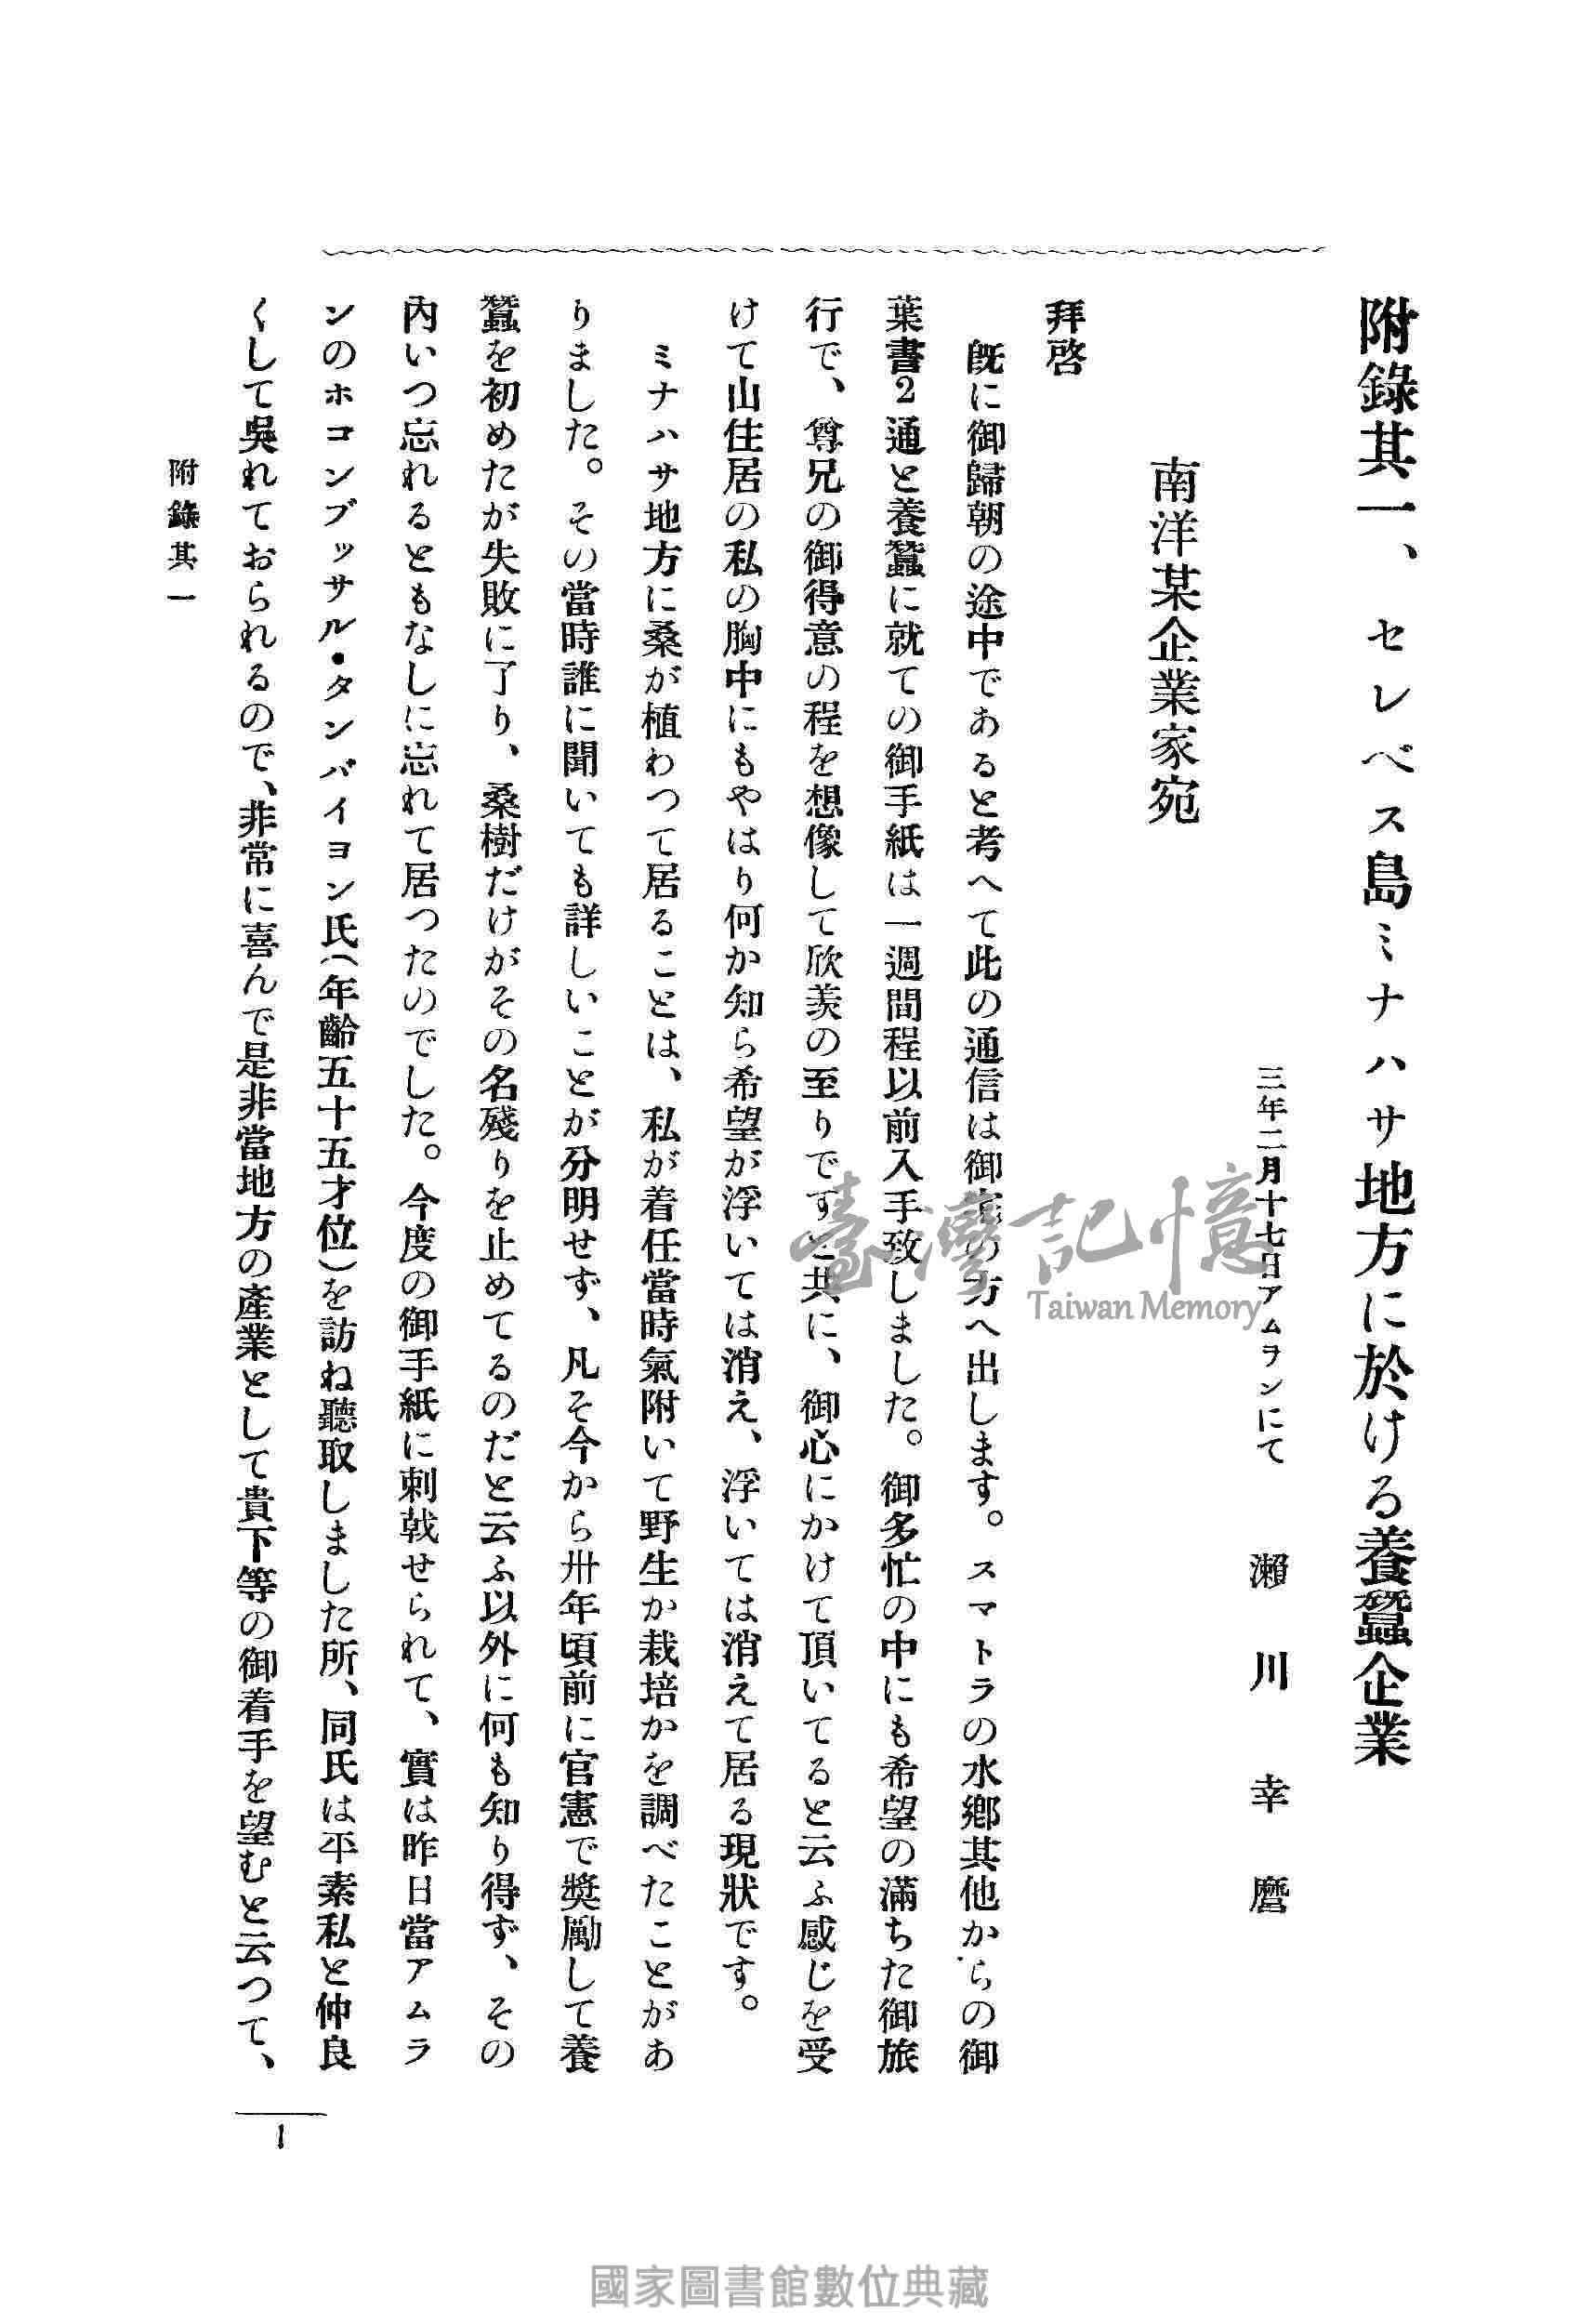 附錄其一、セレベス島ミナハサ地方に於ける養蠶企業
三年二月十七日アムヲンにて 瀨川幸麿
南洋某企業家宛
拜啓
既に御歸朝の途中であると考へて此の通信は御宅の方へ出します。スマトラの水鄕其他からの御
葉書2通と養蠶に就ての御手紙は一週間程以前入手致しました。御多忙の中にも希望の滿ちた御旅
行で、尊兄の御得意の程を想像して欣羨の至りですと共に、御心にかけて頂いてると云ふ感じを受
けて山住居の私の胸中にもやはり何か知ら希望が浮いては消え、浮いては消えて居る現狀です。
ミナハサ地方に桑が植わつて居ることは、私が着任當時氣附いて野生か栽培かを調べたことがあ
りました。その當時誰に聞いても詳しいことが分明せず、凡そ今から卅年頃前に官憲で奬勵して養
蠶を初めたが失敗に了り、桑樹だけがその名殘りを止めてるのだと云ふ以外に何も知り得ず、その
內いつ忘れるともなしに忘れて居つたのでした。今度の御手紙に刺戟せられて、實は昨日當アムラ
ンのホコンブッサル・タンバイヨン氏(年齡五十五才位)を訪ね聽取しました所、同氏は平素私と仲良
くして吳れておられるので、非常に喜んで是非當地方の產業として貴下等の御着手を望むと云つて、
附錄其一
1
臺灣記憶
Taiwan Memory
國家圖書館數位典藏